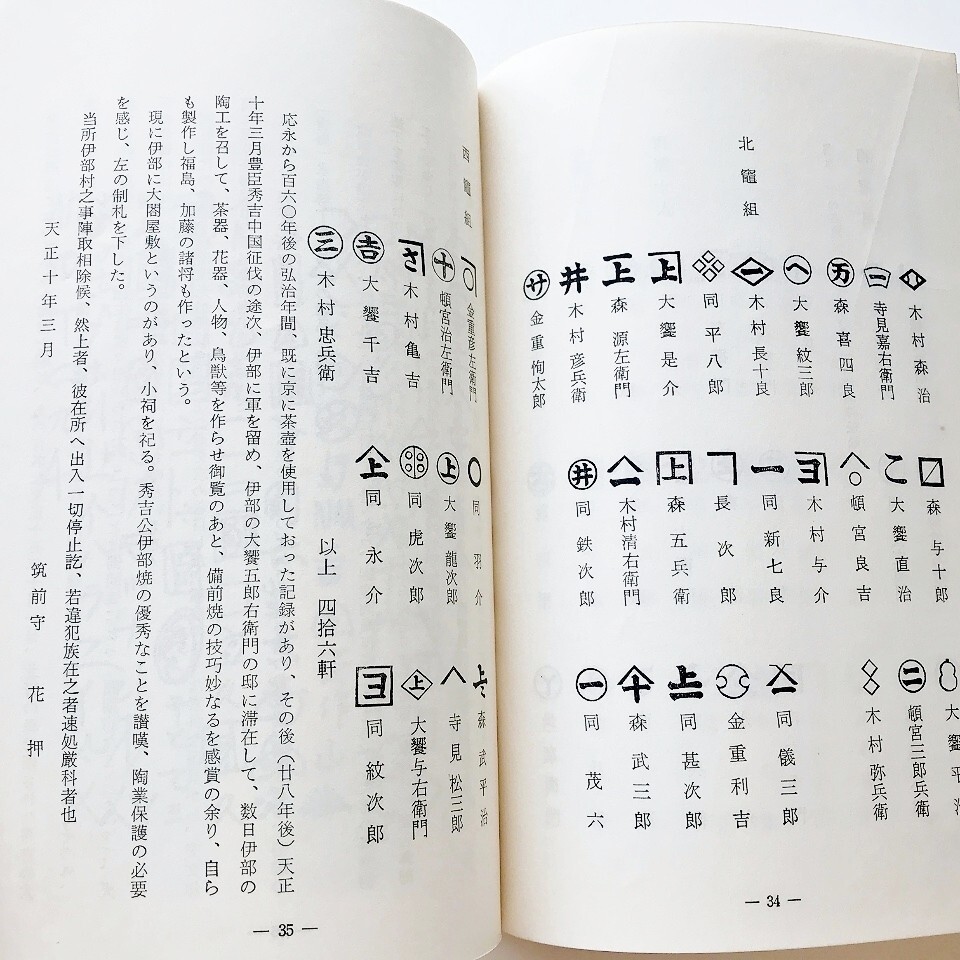 北竈組
木村森治
寺見嘉右衛門
森喜四良
大饗紋三郎
木村長十良
同平八郎
大饗是介
森源左衛門
木村彦兵衛
金重恂太郎
森与十郎
大饗直治
頓宮良吉
木村与介
同新七良
長次郎
森五兵衛
木村清右衛門
同鉄次郎
大饗平治
頓宮三郎兵衛
木村弥兵衛
同儀三郎
金重利吉
同甚次郎
森武三郎
同茂六
— 34 —
西竈組
金重彦左衛門
頓宮治左衛門
木村亀吉
大饗千吉
木村忠兵衛
同羽介
大饗龍次郎
同虎次郎
同永介
森武平治
寺見松三郎
大饗与右衛門
同紋次郎
以上 四拾六軒
応永から百六〇年後の弘治年間、既に京に茶壺を使用しておった記録があり、その後(廿八年後)天正
十年三月豊臣秀吉中国征伐の途次、伊部に軍を留め、伊部の大饗五郎右衛門の邸に滞在して、数日伊部の
陶工を召して、茶器、花器、人物、鳥獣等を作らせ御覧のあと、備前焼の技巧妙なるを感賞の余り、自ら
も製作し福島、加藤の諸将も作ったという。
現に伊部に大閤屋敷というのがあり、小祠を祀る。秀吉公伊部焼の優秀なことを讃嘆、陶業保護の必要
を感じ、左の制札を下した。
当所伊部村之事陣取相除候、然上者、彼在所へ出入一切停止訖、若違犯族在之者速処厳科者也
天正十年三月
筑前守 花押
— 35 —